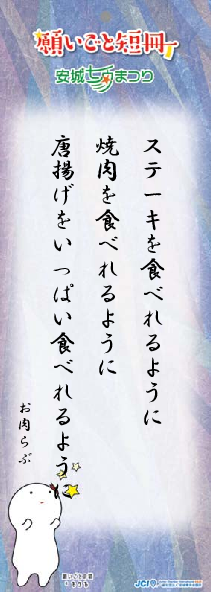 願いごと短冊
安城七夕まつり
ステーキを食べれるように
焼肉を食べれるように
唐揚げをいっぱい食べれるように
お肉らぶ
願いごと短冊
JCI